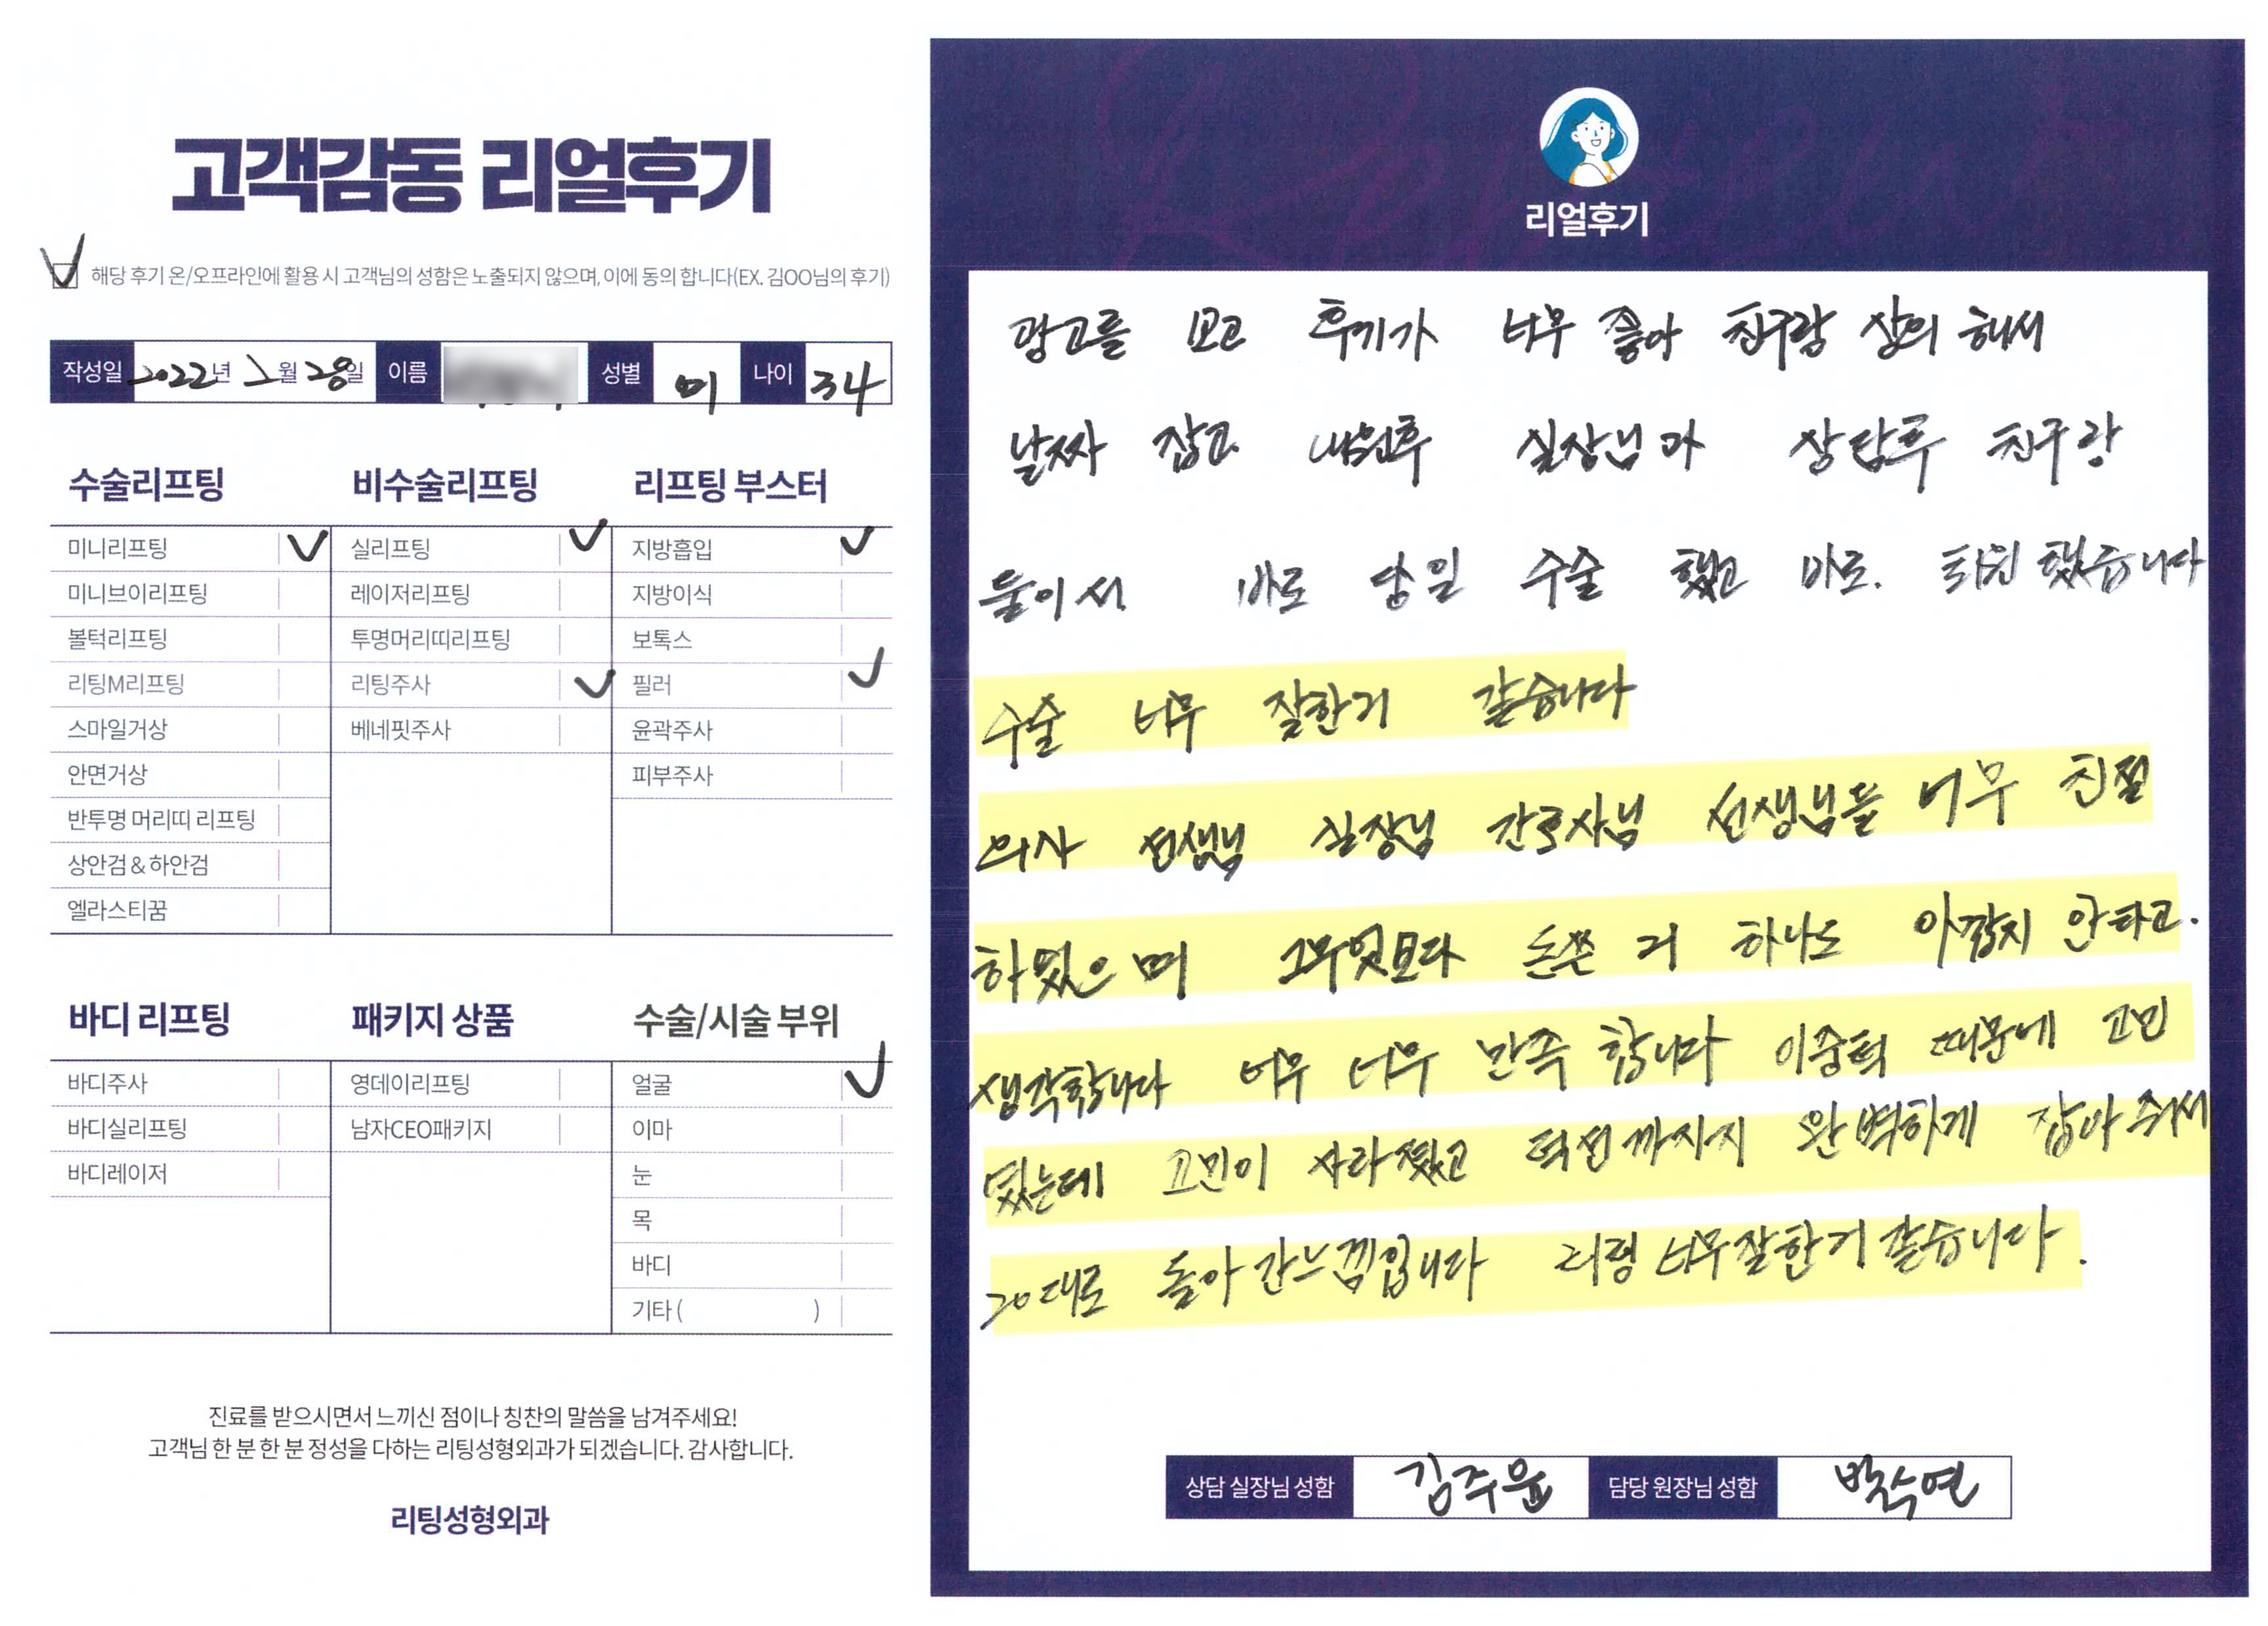 고객감동 리얼후기
해당 후기 온/오프라인에 활용 시 고객님의 성함은 노출되지 않으며, 이에 동의 합니다(EX. 김OO님의 후기)
작성일 2022년 월 28일 이름 성별 여 나이 34
수술리프팅
미니리프팅
미니브이리프팅
볼턱리프팅
리팅M리프팅
스마일거상
안면거상
반투명 머리띠 리프팅
상안검 & 하안검
엘라스티꿈
비수술리프팅
실리프팅
레이저리프팅
투명머리띠리프팅
리팅주사
베네핏주사
리프팅 부스터
지방흡입
지방이식
보톡스
필러
윤곽주사
피부주사
바디 리프팅
바디주사
바디실리프팅
바디레이저
패키지 상품
영데이리프팅
남자CEO패키지
수술/시술 부위
얼굴
이마
눈
목
바디
기타 ( )
진료를 받으시면서 느끼신 점이나 칭찬의 말씀을 남겨주세요!
고객님 한 분 한 분 정성을 다하는 리팅성형외과가 되겠습니다. 감사합니다.
리팅성형외과
리얼후기
광고를 보고 후기가 너무 좋아 친구랑 상의 해서
날짜 잡고 내원후 실장님과 상담후 친구랑
둘이서 바로 당일 수술 했고 바로. 퇴원 했습니다
수술 너무 잘한거 같습니다
의사 선생님 실장님 간호사님 선생님들 너무 친절
하였으며 그무엇보다 돈쓴 거 하나도 아깝지 안타고.
생각합니다 너무 너무 만족 합니다 이중턱 때문에 고민
였는데 고민이 사라졌고 턱선까지 완벽하게 잡아 줘서
20대로 돌아간느낌입니다 리팅 너무잘한거같습니다.
상담 실장님 성함 김주윤 담당 원장님 성함 박수연